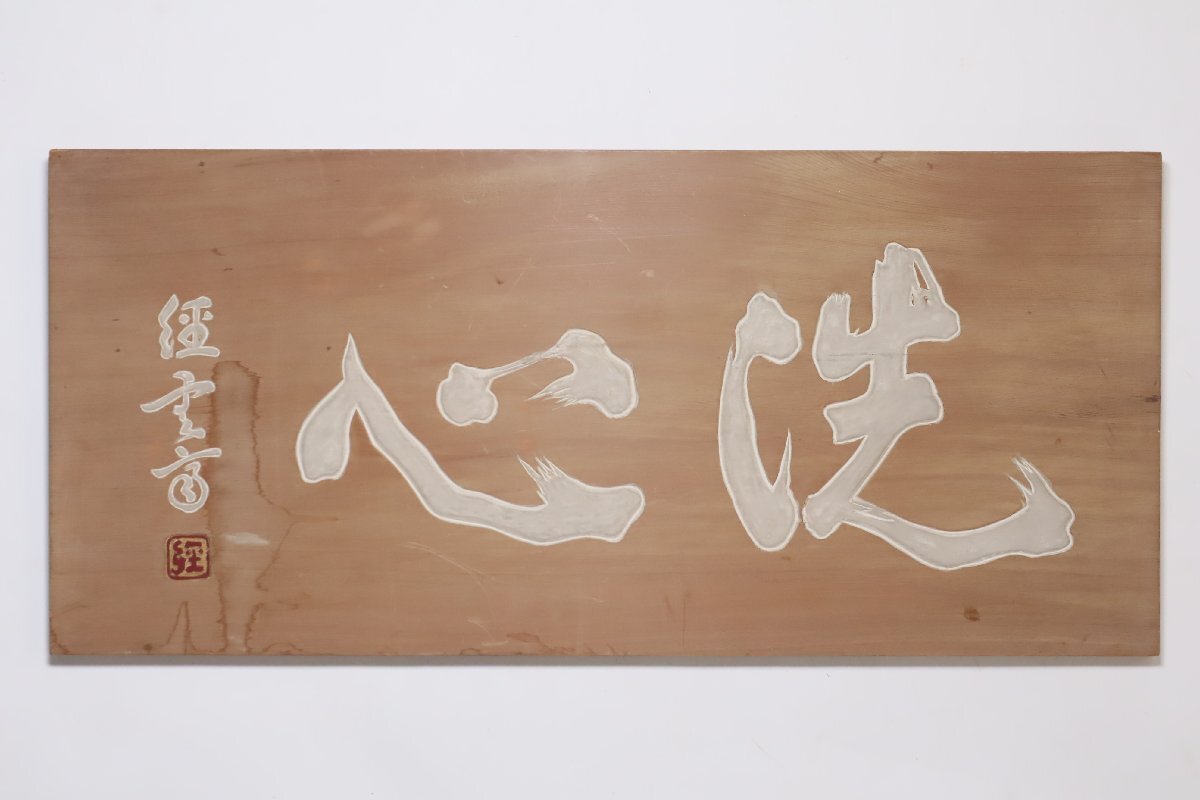 洗心
經雲斎
經